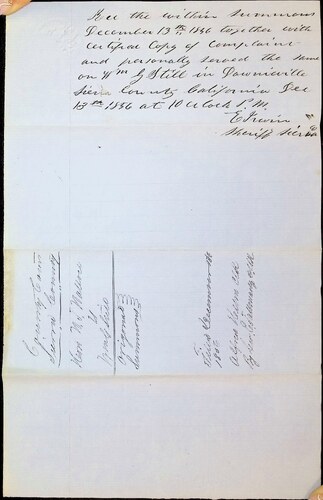 Rec the within Summons
December 13th, 1856 together with
Certified Copy of Complaint
and personally served the same
on Wm G Still in Downieville
Sierra County California Dec
13th 1856 at 10 Oclock P.M.
E Irwin
Sheriff Sierra Co
County Court
Sierra County
Wm H.
vs
Wm G Still
Original
Summons
Filed December
1856
Clk
By Dep Clk